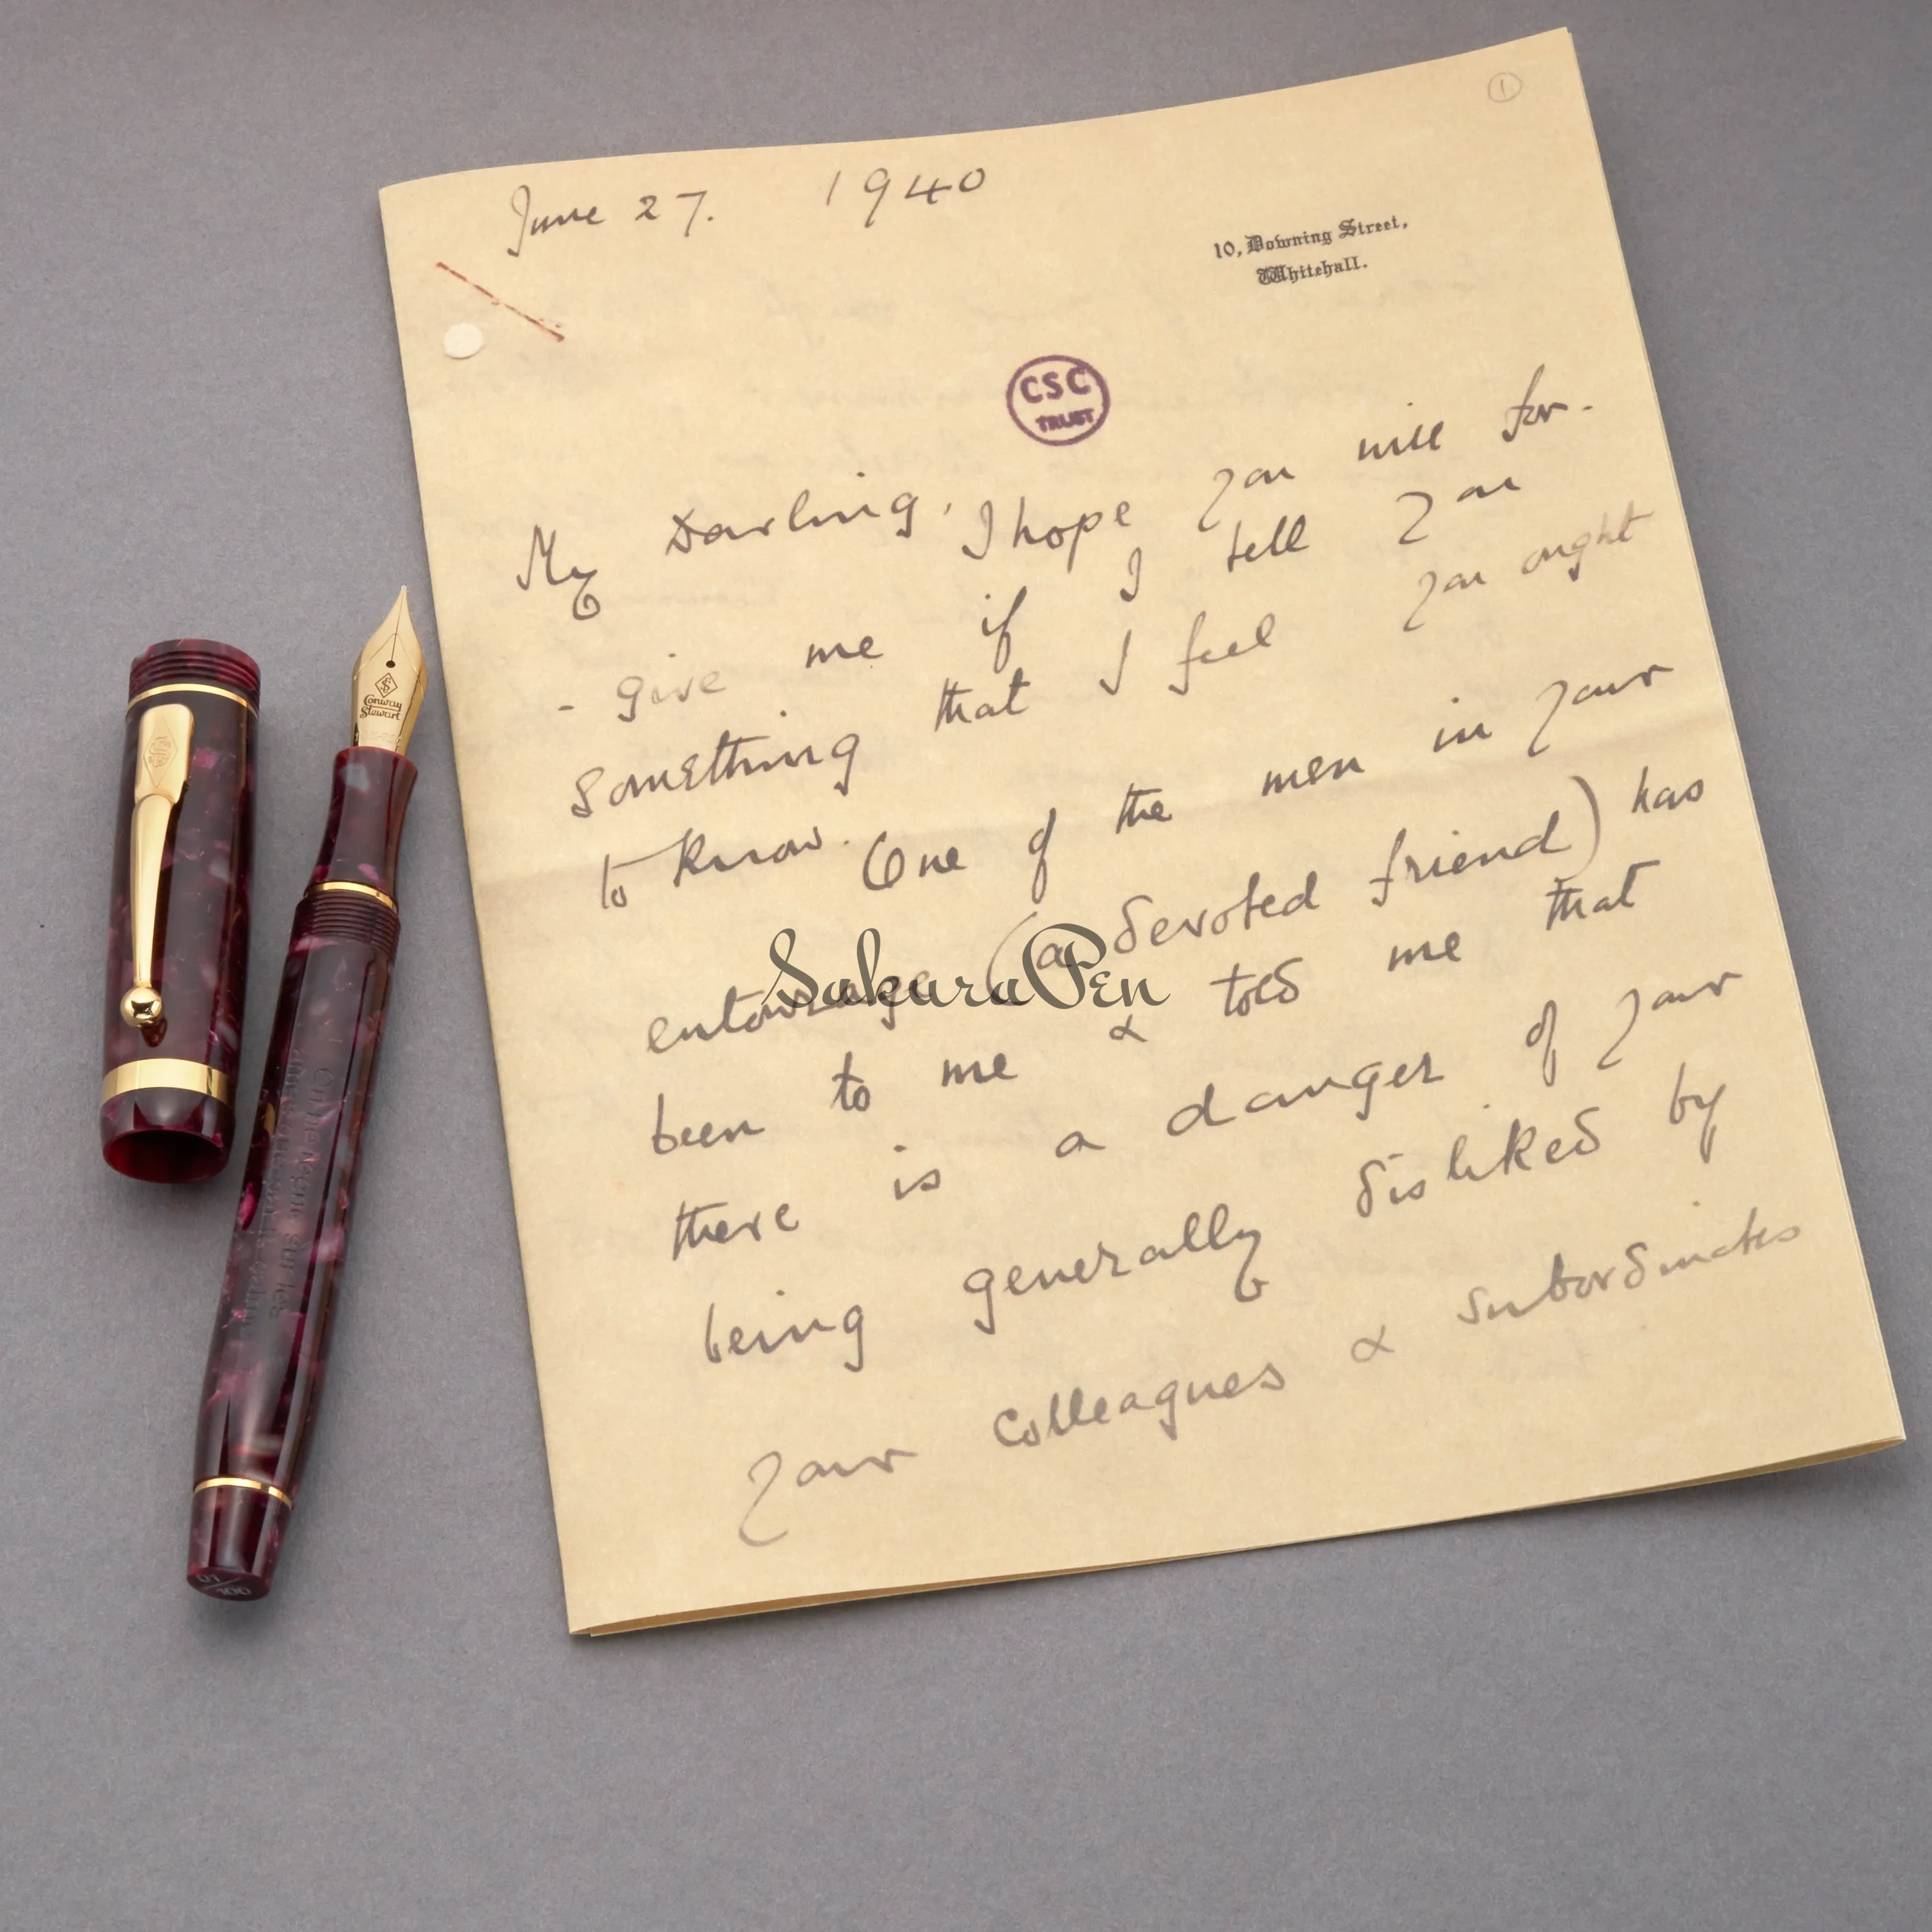 ①
June 27. 1940
10, Downing Street,
Whitehall.
CSC
TRUST
My Darling, I hope you will for-
- give me if I tell you
something that I feel you ought
to know. One of the men in your
entourage (a devoted friend) has
been to me & told me that
there is a danger of your
being generally disliked by
your colleagues & subordinates
SakuraPen
Conway
Stewart
01/100